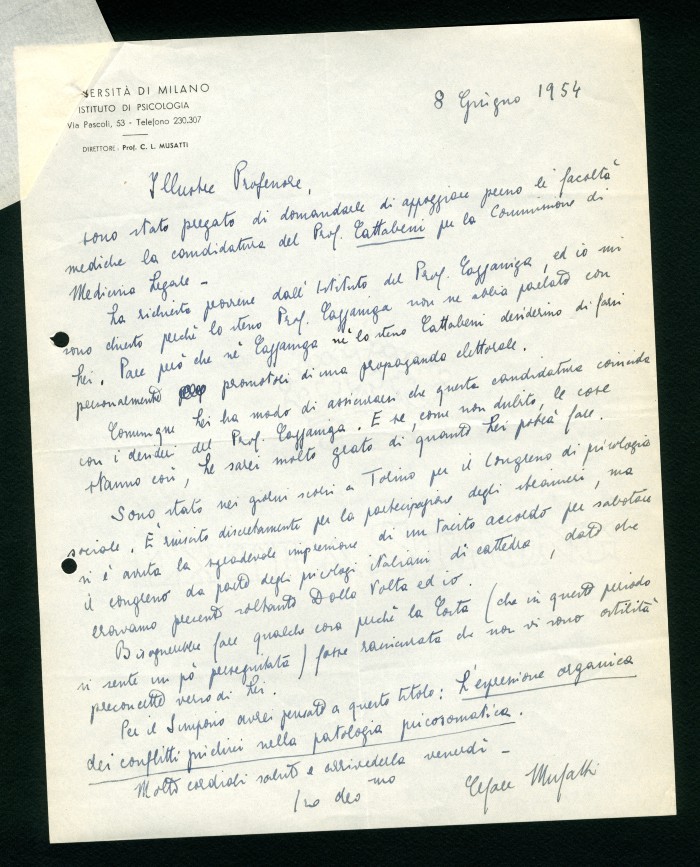 ERSITÀ DI MILANO
ISTITUTO DI PSICOLOGIA
Via Pascoli, 53 - Telefono 230.307
DIRETTORE: Prof. C. L. MUSATTI
8 Giugno 1954
Illustre Professore,
sono stato pregato di domandarle di appoggiare presso le facoltà
mediche la candidatura del Prof. Cattabeni per la Commissione di
Medicina Legale -
La richiesta proviene dall'Istituto del Prof. Cazzaniga, ed io mi
sono chiesto perchè lo stesso Prof. Cazzaniga non ne abbia parlato con
Lei. Pare però che nè Cazzaniga nè lo stesso Cattabeni desiderino di farsi
personalmente promotori di una propaganda elettorale.
Comunque Lei ha modo di assicurarsi che questa candidatura coincida
con i desideri del Prof. Cazzaniga. E se, come non dubito, le cose
stanno così, Le sarei molto grato di quanto Lei potrà fare.
Sono stato nei giorni scorsi a Torino per il Congresso di psicologia
sociale. È riuscito discretamente per la partecipazione degli stranieri, ma
si è avuta la sgradevole impressione di un tacito accordo per sabotare
il congresso da parte degli psicologi italiani di cattedra, dato che
eravamo presenti soltanto Dalla Volta ed io.
Bisognerebbe fare qualche cosa perchè la Costa (che in questo periodo
si sente un pò perseguitata) fosse rassicurata che non vi sono ostilità
preconcette verso di Lei.
Per il Simposio avrei pensato a questo titolo: L'espressione organica
dei conflitti psichici nella patologia psicosomatica.
Molti cordiali saluti e arrivederla venerdì -
Suo dev mo
Cesare Musatti